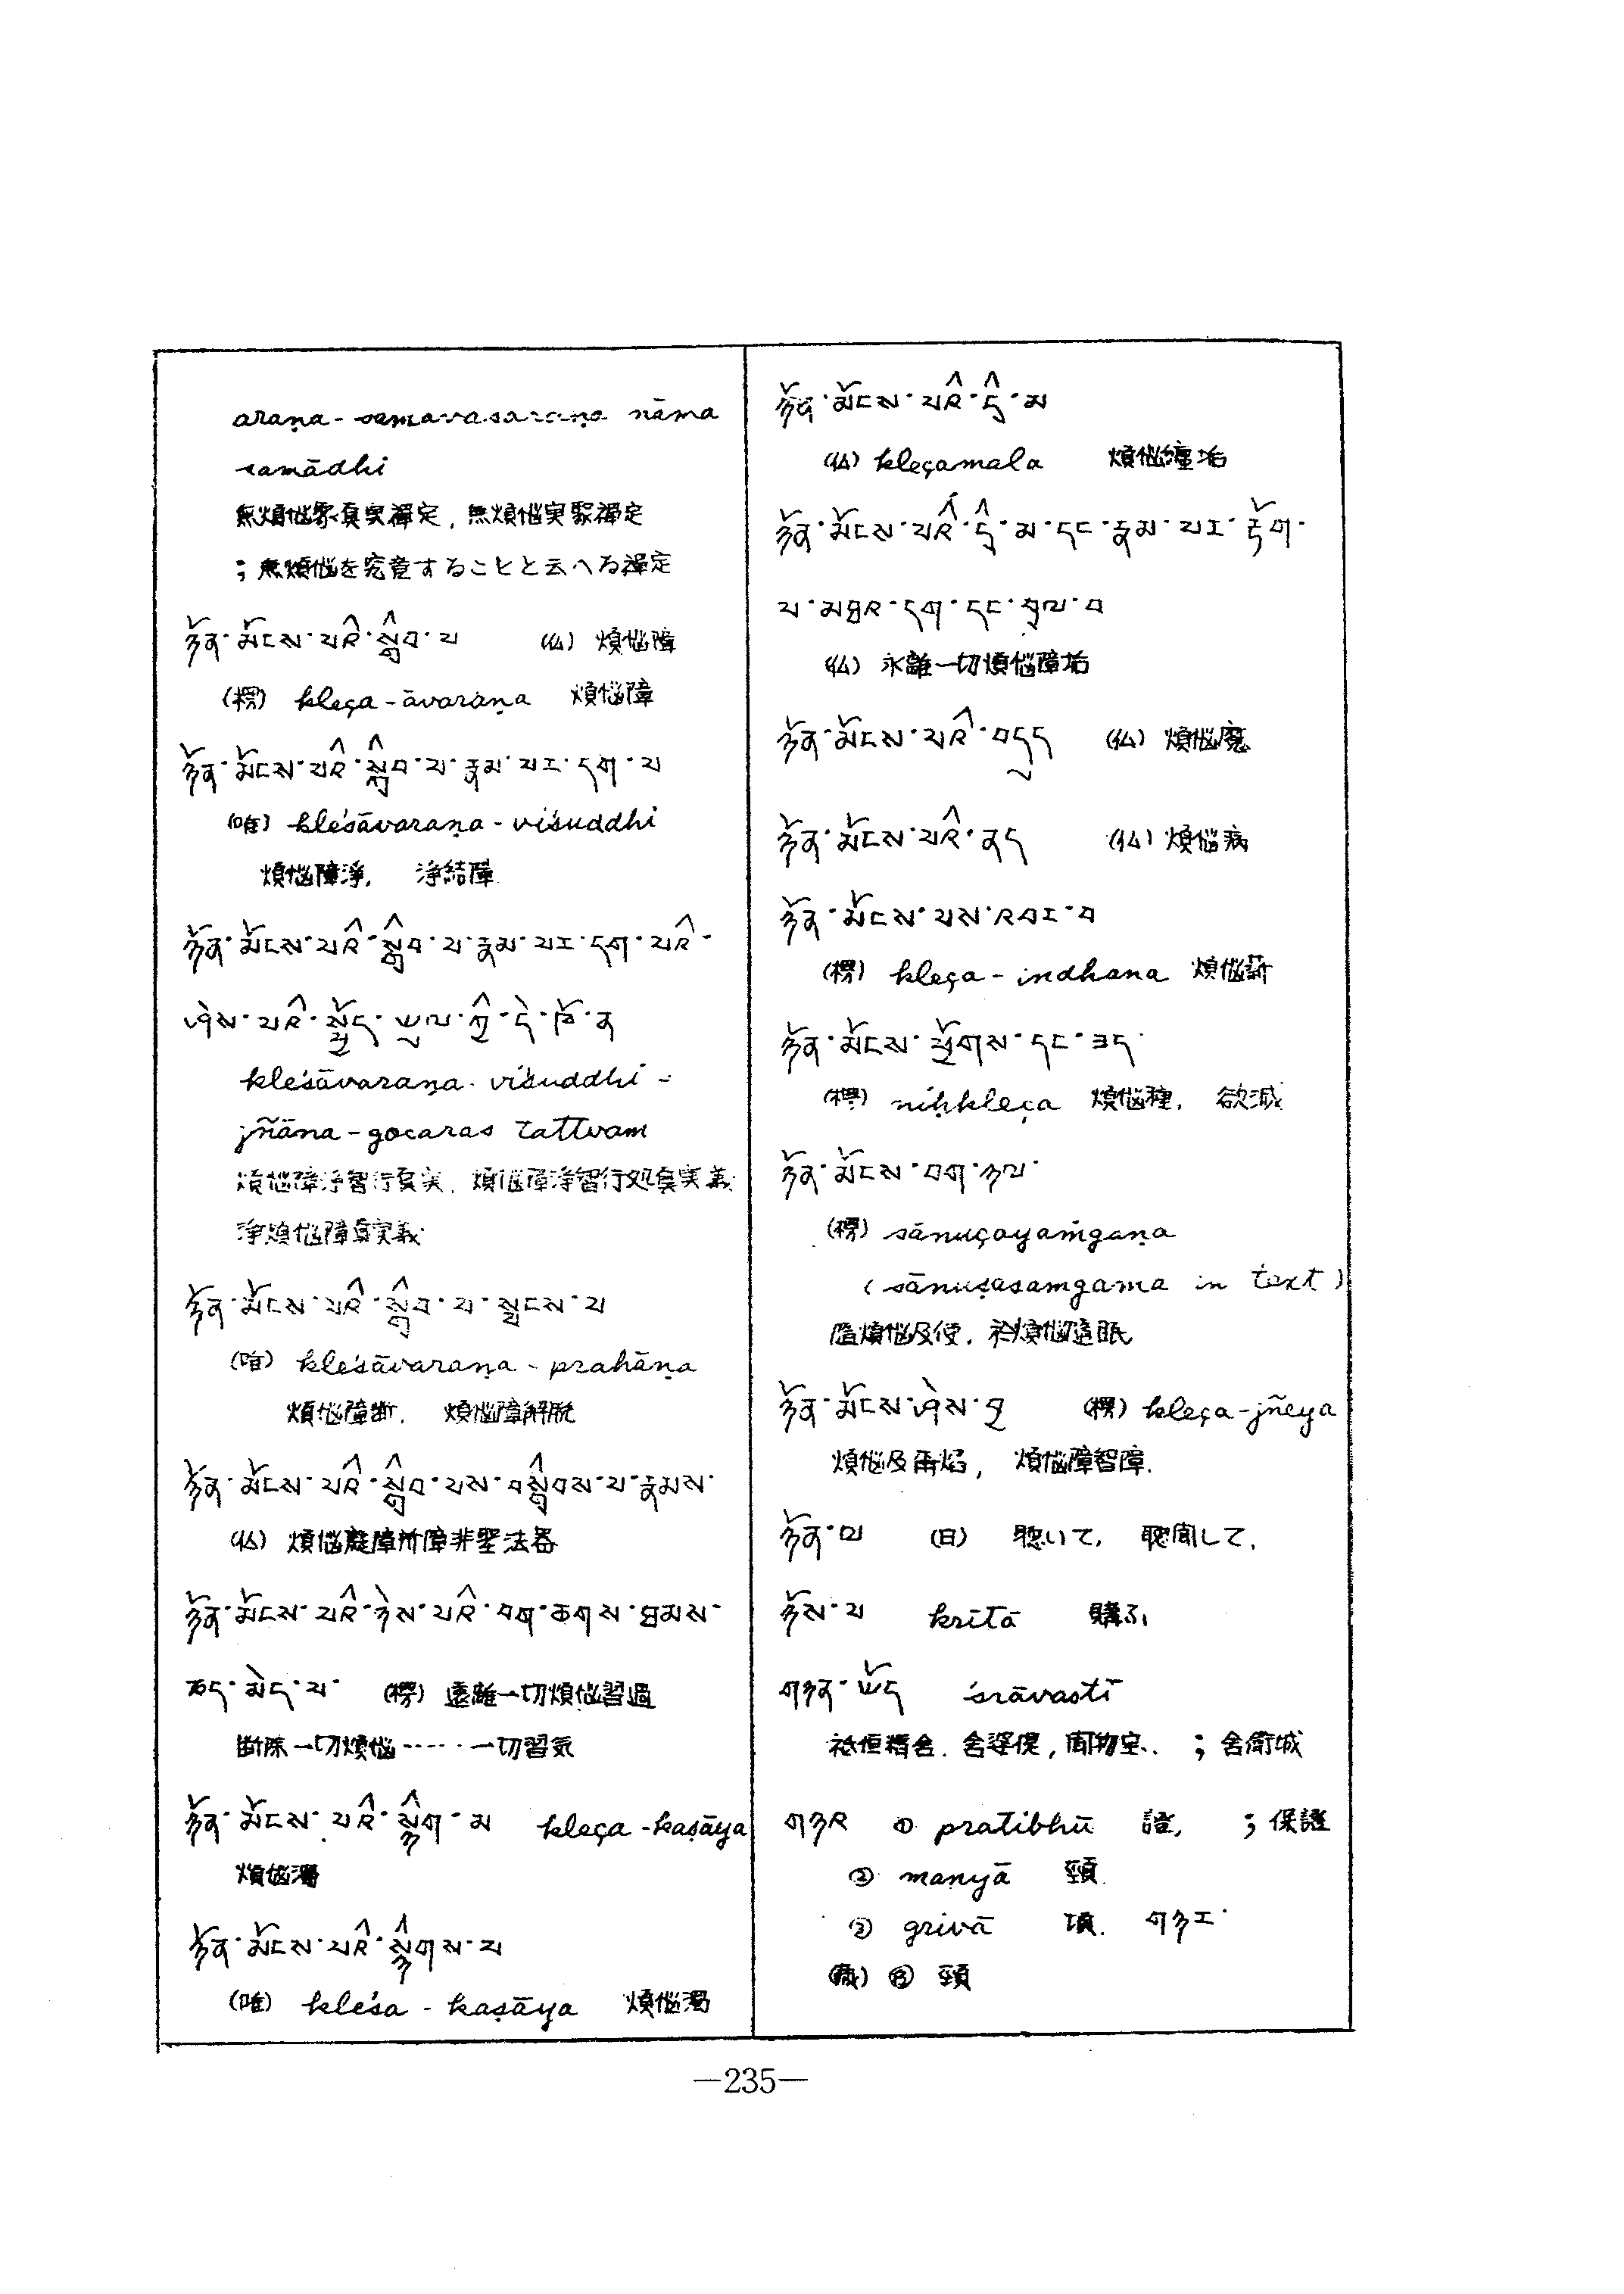 araṇa-samavasaraṇa nāma
samādhi
無煩悩聚真実禪定, 無煩悩実聚禪定
; 無煩悩を究竟することと云へる禪定
ཉོན་མོངས་པའི་སྒྲིབ་པ (仏) 煩悩障
(楞) kleça-āvaraṇa 煩悩障
ཉོན་མོངས་པའི་སྒྲིབ་པ་རྣམ་པར་དག་པ
(唯) kleśāvaraṇa-viśuddhi
煩悩障淨, 淨結障
ཉོན་མོངས་པའི་སྒྲིབ་པ་རྣམ་པར་དག་པའི་
ཤེས་པའི་སྤྱོད་ཡུལ་གྱི་དེ་ཁོ་ན
kleśāvaraṇa-viśuddhi-
jñāna-gocaras tattvam
煩悩障淨智行真実, 煩悩障淨智行処真実義
淨煩悩障真実義
ཉོན་མོངས་པའི་སྒྲིབ་པ་སྤངས་པ
(唯) kleśāvaraṇa-prahāṇa
煩悩障断, 煩悩障解脱
ཉོན་མོངས་པའི་སྒྲིབ་པས་བསྒྲིབས་པ་རྣམས་
(仏) 煩悩障所障非聖法器
ཉོན་མོངས་པའི་ཉེས་པའི་བག་ཆགས་ཐམས་
ཅད་མེད་པ་ (楞) 遠離一切煩悩習過
断除一切煩悩‥‥‥一切習気
ཉོན་མོངས་པའི་སྙིག་མ kleça-kaṣāya
煩悩濁
ཉོན་མོངས་པའི་སྙིགས་པ
(唯) kleśa-kaṣāya 煩悩濁
ཉོན་མོངས་པའི་དྲི་མ
(仏) kleçamala 煩悩纏垢
ཉོན་མོངས་པའི་དྲི་མ་དང་རྣམ་པར་རྟོག་
པ་མཐའ་དག་དང་བྲལ་བ
(仏) 永離一切煩悩障垢
ཉོན་མོངས་པའི་བདུད (仏) 煩悩魔
ཉོན་མོངས་པའི་ནད (仏) 煩悩病
ཉོན་མོངས་པས་འབར་བ
(楞) kleça-indhana 煩悩薪
ཉོན་མོངས་ཕྱོགས་དང་ཟད་
(楞) niḥkleça 煩悩種, 欲滅
ཉོན་མོངས་བག་ཉལ་
(楞) sānuçayaṁgaṇa
(sānuṣasamgama in text)
煩悩及使, 於煩悩随眠
ཉོན་མོངས་ཤེས་བྱ (楞) kleça-jñeya
煩悩及爾焔, 煩悩障智障.
ཉོན་ལ (日) 聴いて, 聴聞して.
ཉོས་པ krītā 購ふ
གཉན་ཡོད śrāvastī
祇恒精舍. 舍婆提, 聞物室、 ; 舍衛城
གཉའ ① pratibhū 證, ; 保證
② manyā 頸.
③ grīvā 項. གཉར་
(蔵) 頸